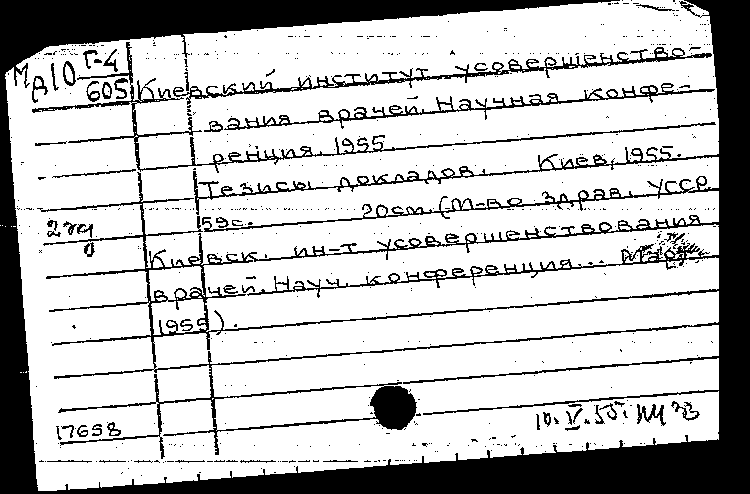 МА10 Г-4
605
Киевский институт усовершенство-
вания врачей. Научная конфе-
ренция. 1955.
Тезисы докладов. Киев, 1955.
59с. 20см. (М-во здрав. УССР
Киевск. ин-т усовершенствования
врачей. Науч. конференция... Март
1955).
17658
10.V.55.